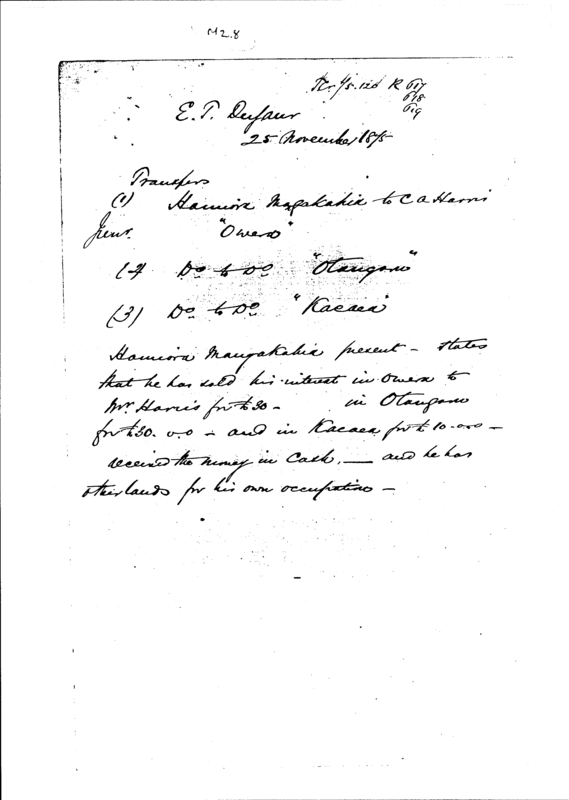 M2.8
Tr. 15.126 R 617
618
619
E. T. Dufaur
25 November 1875
Transfers
(1) Hamiora Mangakahia to C A Harris
Junr. "Owera"
(2) Do to Do "Otangaro"
(3) Do to Do "Kacaea"
Hamiora Mangakahia present – states
that he has sold his interest in Owera to
Mr. Harris for £30 – in Otangaro
for £30. 0.0 – and in Kacaea for £10.0.0 –
received the money in Cash. — and he has
other lands for his own occupation –